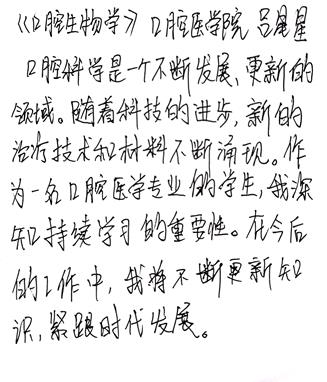 《口腔生物学》 口腔医学院 吕星星
口腔科学是一个不断发展、更新的
领域。随着科技的进步,新的
治疗技术和材料不断涌现。作
为一名口腔医学专业的学生,我深
知持续学习的重要性。在今后
的工作中,我将不断更新知
识,紧跟时代发展。